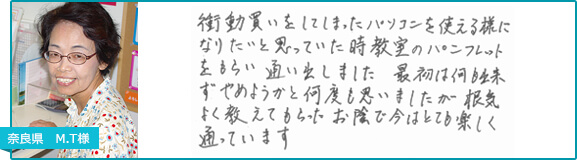 衝動買いをしてしまったパソコンを使える様に
なりたいと思っていた時教室のパンフレット
をもらい 通い出しました 最初は何も出来
ずやめようかと何度も思いましたが 根気
よく教えてもらったお陰で今はとても楽しく
通っています
奈良県 M.T様